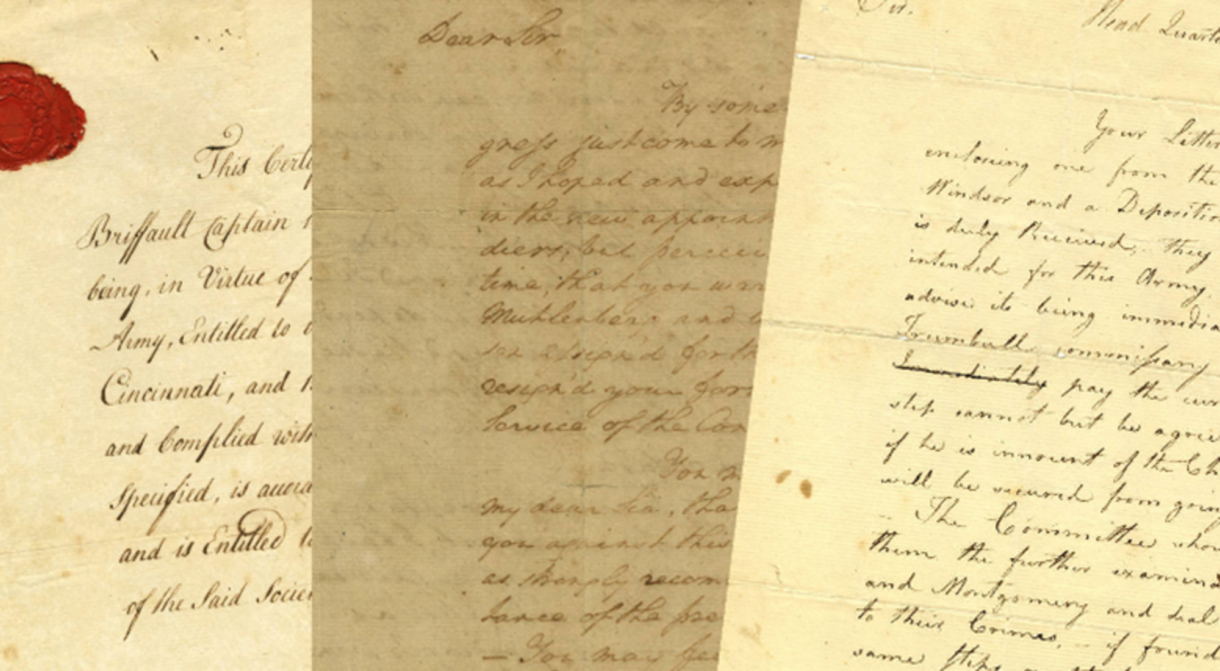 This Certi
Briffault Captain
being, in Virtue of
Army, Entitled to
Cincinnati, and
and Complied with
Specified, is
and is Entitled
of the Said Socie
Dear Sir
By some
gress just come to
as I hoped and exp
in the new appoint
diers, but
time, that you
Muhlenberg and
for th
resign'd your for
Service of the Con
You
my dear Sir, tha
you against this
as strongly recom
of the pre
— You may
Sir.
Head Quarte
Your Letter
enclosing one from the
Windsor and a Depositio
is duly Received, they
intended for this Army.
advise its being immedia
Trumbull commissary
Immediately pay the
step cannot but be agree
if he is innocent of the Ch
will be secured from goin
— The Committee
them the further examina
and Montgomery and deal
to their Crimes, — if found
same steps